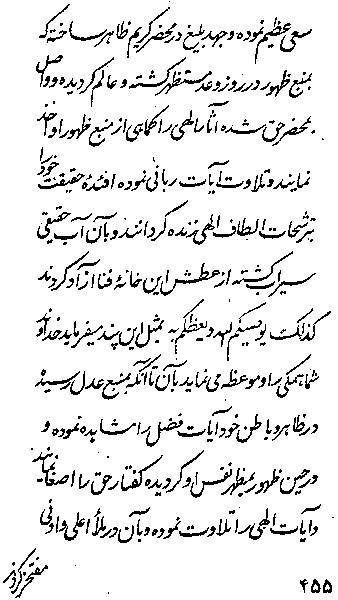 سعی عظیم نموده و جهد بلیغ در محضر کریم ظاهر ساخته که
بمنبع ظهور در روز وعد مستظهر کشته و عالم کردیده و واصل
بمحضر حق شده آثار الهی را کماهی از منبع ظهور او اخذ
نمایند و تلاوت آیات ربانی نموده افئدهٔ حقیقت خود را
بترشحات الطاف الهی زنده کردانند و بآن آب حقیقی
سیراب کشته از عطش این خانهٔ فنا آزاد کردند
کذلک یوصیکم الله و یعظکم به بمثل این پند میفرماید خداوند
شما همکی را و موعظه می نماید بآن تا آنکه بمنبع عدل رسیده
در ظاهر و باطن خود آیات فضل را مشاهده نموده و
در حین ظهور بمظهر نفس او کردیده کفتار حق را اصغا نمایند
و آیات الهی را تلاوت نموده و بآن در ملأ اعلی و ادنی
مفتخر کردند
۴۵۵